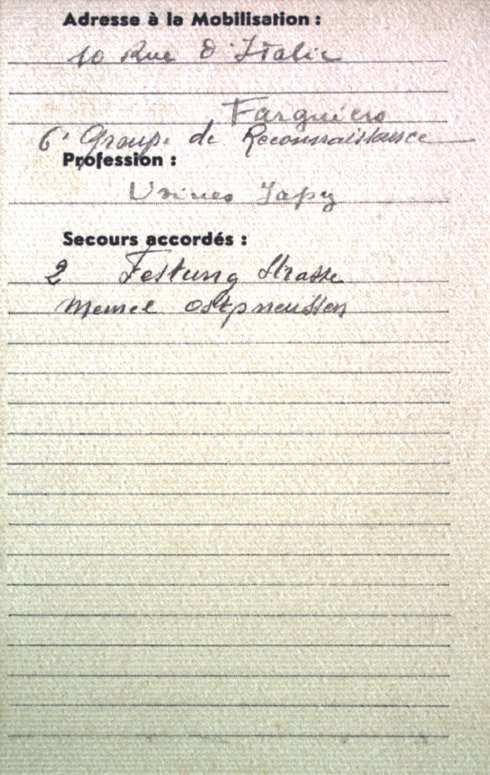 Adresse à la Mobilisation :
10 Rue d'Italie
Farguiers
6e Groupe de Reconnaissance
Profession :
Usines Japy
Secours accordés :
2 Festung Strasse
Memel Ostpreussen